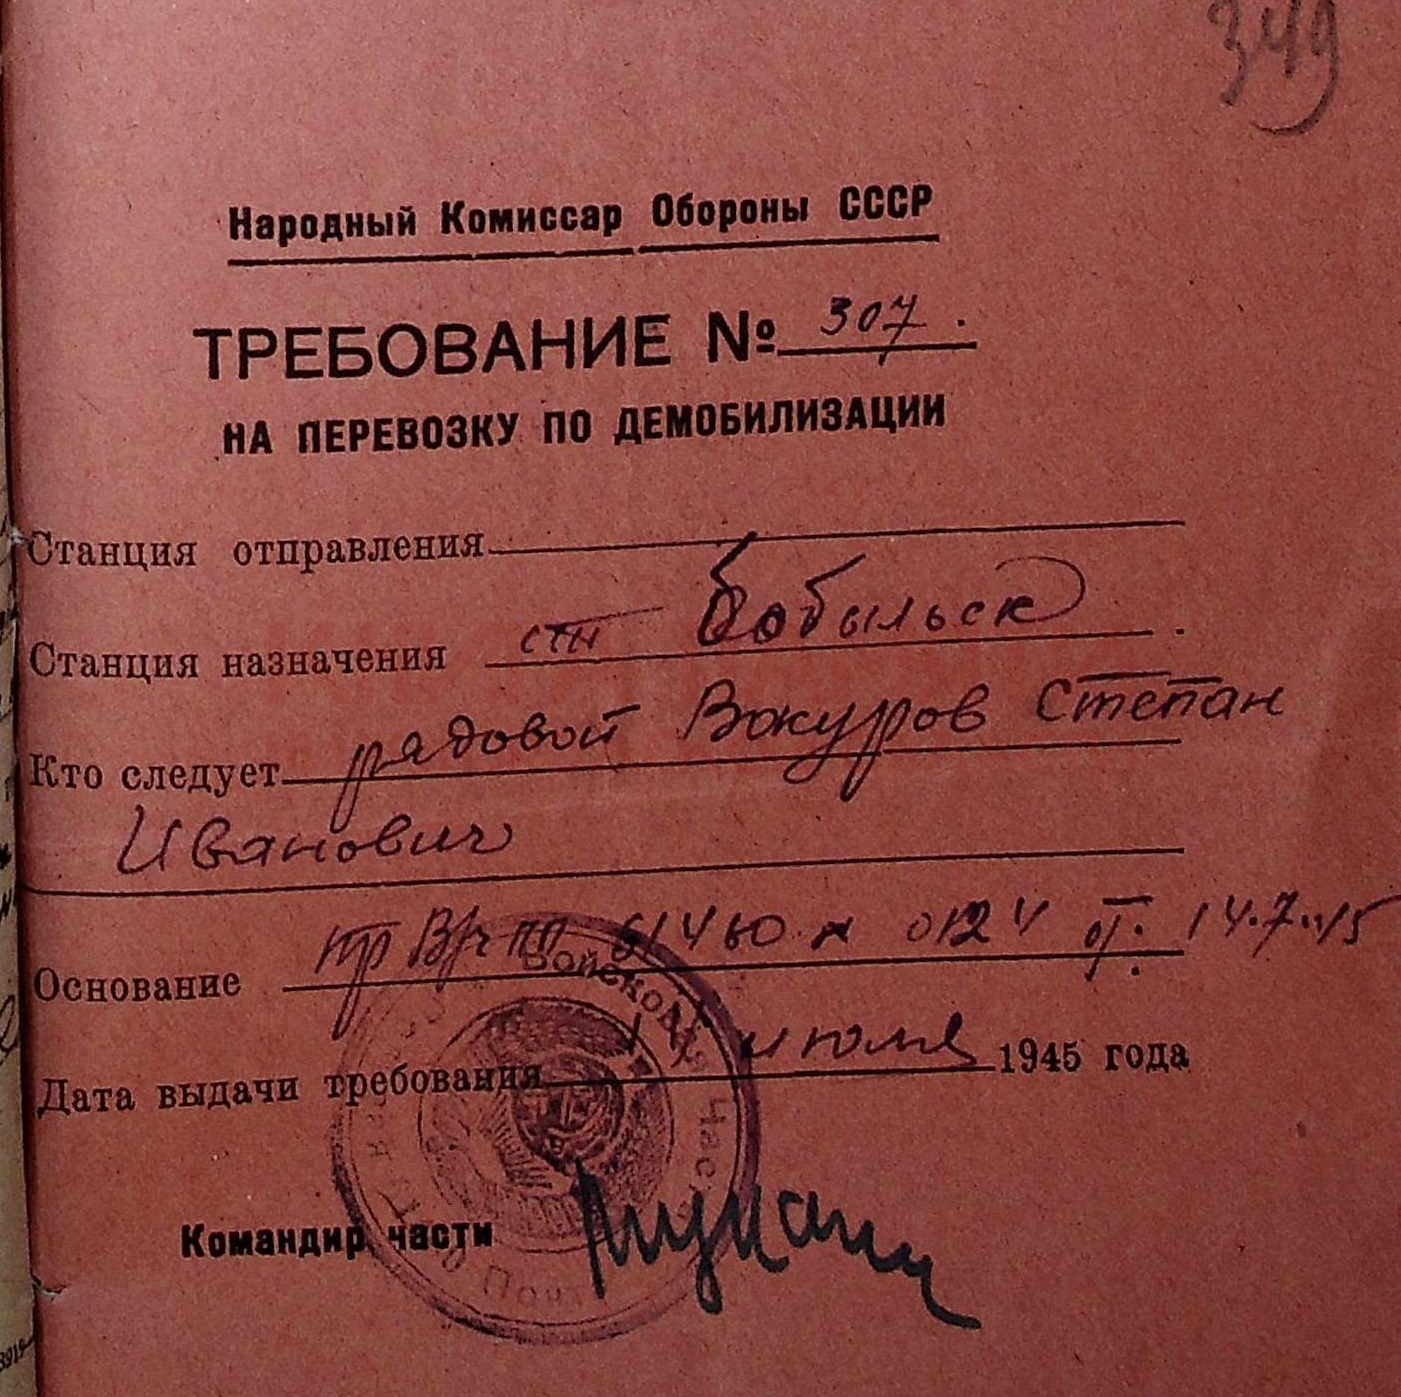 349
Народный Комиссар Обороны СССР
ТРЕБОВАНИЕ № 307.
НА ПЕРЕВОЗКУ ПО ДЕМОБИЛИЗАЦИИ
Станция отправления
Станция назначения стн Бобыльск
Кто следует рядовой Вокуров Степан
Иванович
Основание пр В/ч пп 61460 № 0124 от. 14.7.45
Дата выдачи требования июля 1945 года
Командир части
Войсковая Часть